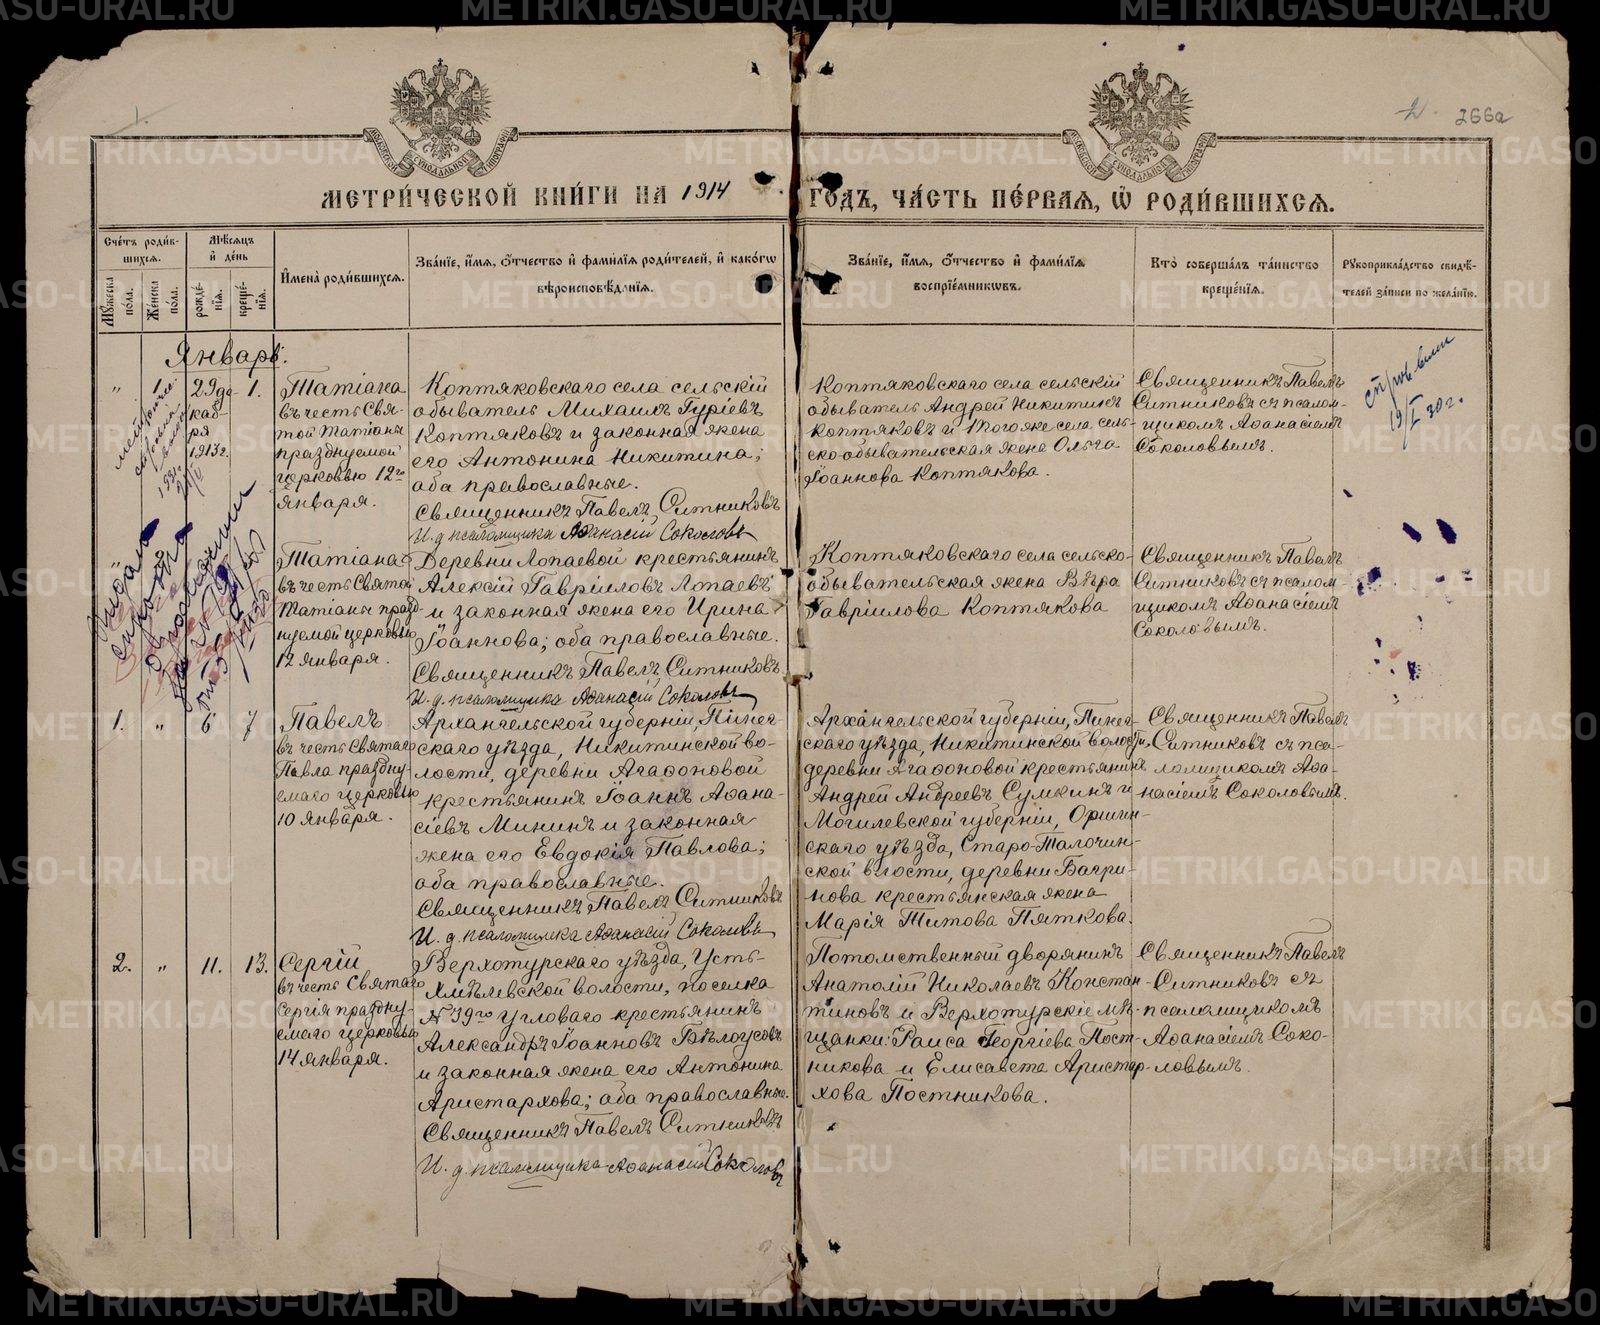 METRIKI.GASO-URAL.RU
1.
2.
266а
МОСКОВСКОЙ СѴНОДАЛЬНОЙ ТИПОГРАФІИ
МЕТРИ́ЧЕСКОЙ КНИ́ГИ НА 1914 ГО́ДЪ, ЧА́СТЬ ПЕ́РВАЯ, Ѽ РОДИ́ВШИХСЯ.
Сче́тъ роди́в-
шихся.
Му́жеска по́ла.
Же́нска по́ла.
Мѣ́сяцъ
и҆ де́нь
рожде́-
нїя.
креще́-
нїя.
И҆мена̀ роди́вшихся.
Зва́нїе, и҆́мя, ѻ҆́тчество и҆ фамѝлїя роди́телей, и҆ како́гѡ
вѣроисповѣ́данїя.
Зва́нїе, и҆́мя, ѻ҆́тчество и҆ фамѝлїя
воспрїе́мникѡвъ.
Кто̀ соверша́лъ та́инство
креще́нїя.
Рꙋкоприкла́дство свидѣ́-
телей за́писи по жела́нїю.
Январь.
"
1.
29 де-
каб-
ря
1913 г.
1.
Татіана
въ честь Свя-
той Татіаны
празднуемой
церковью 12го
января.
Коптяковскаго села сельскій
обыватель Михаилъ Гуріевъ
Коптяковъ и законная жена
его Антонина Никитина;
оба православные.
Священникъ Павелъ Ситниковъ
И. д. псаломщика Аѳанасій Соколовъ
Коптяковскаго села сельскій
обыватель Андрей Никитинъ
Коптяковъ и того же села сель-
скообывательская жена Ольга
Іоаннова Коптякова.
Священникъ Павелъ
Ситниковъ съ псалом-
щикомъ Аѳанасіемъ
Соколовымъ.
19/I 30 г.
Татіана
въ честь Святой
Татіаны празд-
нуемой церковью
12 января.
Деревни Лопаевой крестьянинъ
Алексій Гавріиловъ Лопаевъ
и законная жена его Ирина
Іоаннова; оба православные.
Священникъ Павелъ Ситниковъ
И. д. псаломщика Аѳанасій Соколовъ
Коптяковскаго села сельско-
обывательская жена Вѣра
Гавріилова Коптякова
Священникъ Павелъ
Ситниковъ съ псалом-
щикомъ Аѳанасіемъ
Соколовымъ.
1.
"
6
7
Павелъ
въ честь Святаго
Павла праздну-
емаго церковью
10 января.
Архангельской губерніи, Пинеж-
скаго уѣзда, Никитинской во-
лости, деревни Агаѳоновой
крестьянинъ Іоаннъ Аѳана-
сіевъ Мининъ и законная
жена его Евдокія Павлова;
оба православные.
Священникъ Павелъ Ситниковъ
И. д. псаломщика Аѳанасій Соколовъ
Архангельской губерніи, Пинеж-
скаго уѣзда, Никитинской волости,
деревни Агаѳоновой крестьянинъ
Андрей Андреевъ Сумкинъ и
Могилевской губерніи, Оршин-
скаго уѣзда, Старо-Талочин-
ской волости, деревни Багри-
нова крестьянская жена
Марія Титова Пяткова.
Священникъ Павелъ
Ситниковъ съ пса-
ломщикомъ Аѳа-
насіемъ Соколовымъ.
2.
"
11.
13.
Сергій
въ честь Святаго
Сергія праздну-
емаго церковью
14 января.
Верхотурскаго уѣзда, Усть-
Хмѣлевской волости, поселка
№ 39го Угловаго крестьянинъ
Александръ Іоанновъ Бѣлоусовъ
и законная жена его Антонина
Аристархова; оба православные.
Священникъ Павелъ Ситниковъ
И. д. псаломщика Аѳанасій Соколовъ
Потомственный дворянинъ
Анатолій Николаевъ Констан-
тиновъ и Верхотурскіе мѣ-
щанки: Раиса Георгіева Пост-
никова и Елисавета Аристар-
хова Постникова.
Священникъ Павелъ
Ситниковъ съ
псаломщикомъ
Аѳанасіемъ Соко-
ловымъ.